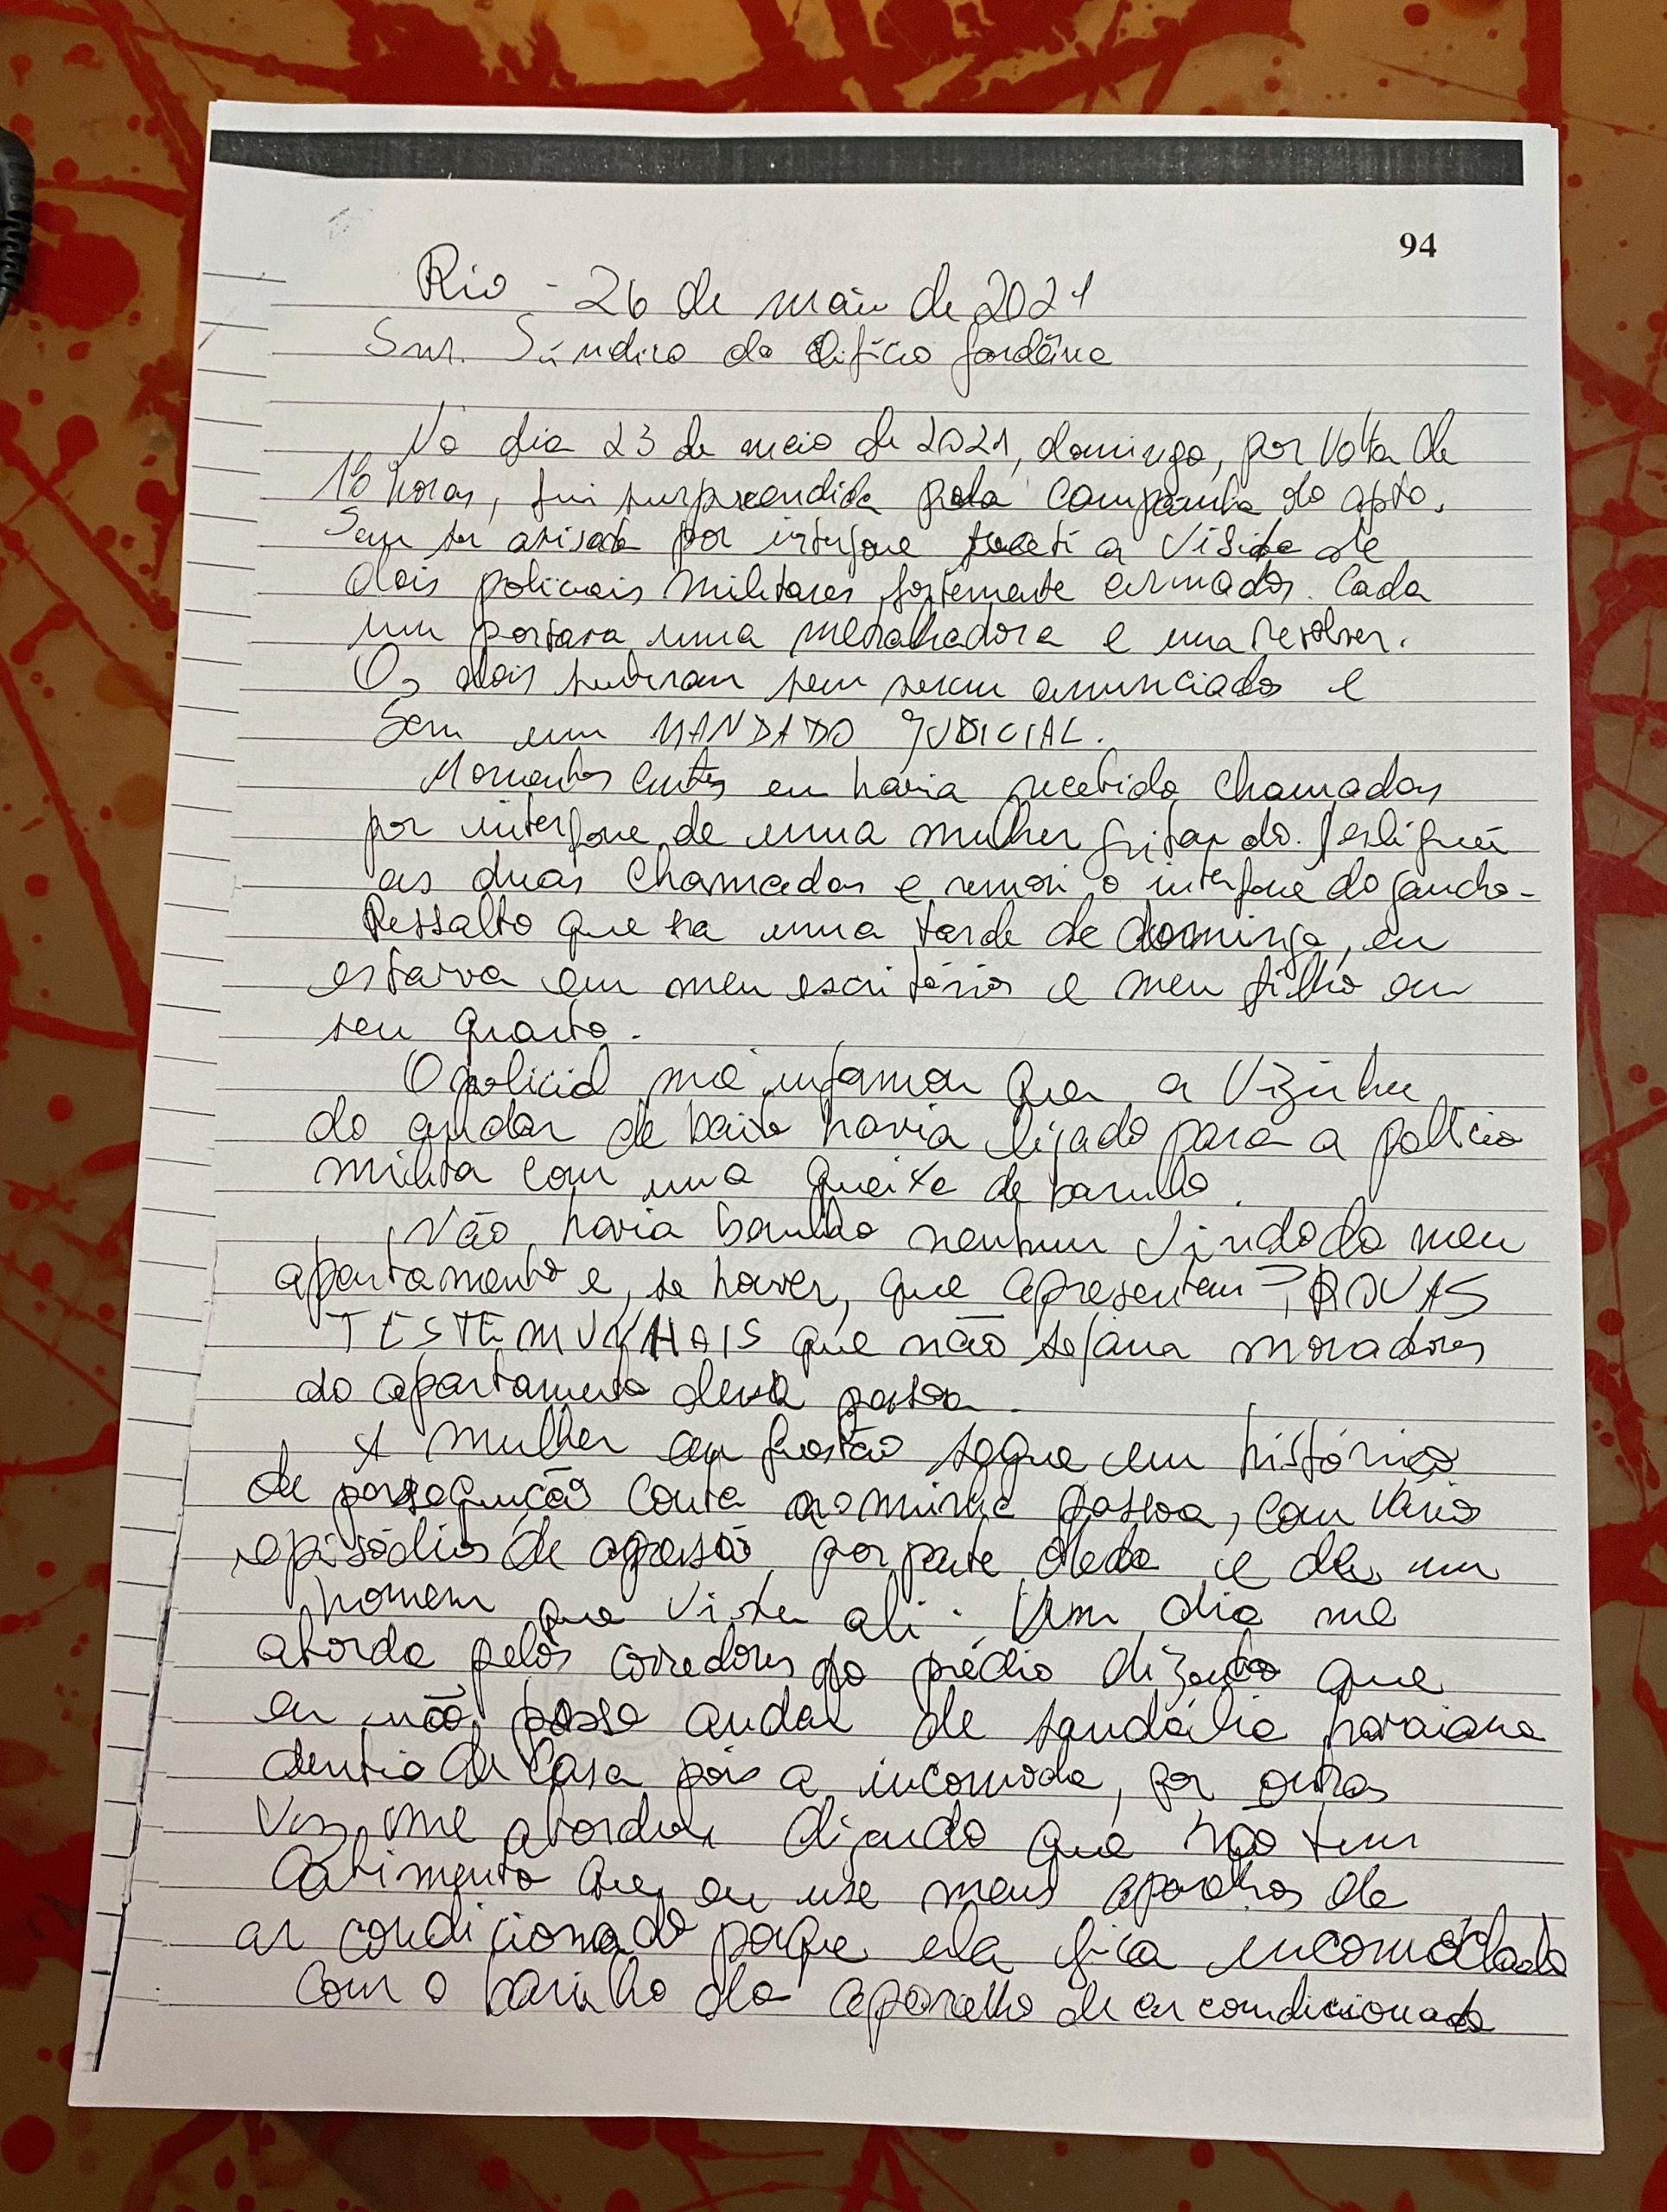 94
Rio - 26 de maio de 2021
Snr. Síndico do Edifício Jordânia
No dia 23 de maio de 2021, domingo, por volta de
horas, fui surpreendida pela campainha do apto.
Sem ser avisada por interfone recebi a visita de
dois policiais militares fortemente armados. Cada
um portava uma metralhadora e um revolver.
Os dois subiram sem serem anunciados e
sem um MANDADO JUDICIAL.
Momentos antes eu havia recebido chamadas
por interfone de uma mulher gritando. Desliguei
as duas chamadas e removi o interfone do gancho.
Ressalto que era uma tarde de domingo, eu
estava em meu escritório e meu filho em
seu quarto.
O policial me informou que a vizinha
do andar de baixo havia ligado para a polícia
militar com uma queixa de barulho.
Não havia barulho nenhum vindo do meu
apartamento e, se houver, que apresentem PROVAS
TESTEMUNHAIS que não sejam moradores
do apartamento dessa pessoa.
A mulher em questão segue em histórico
de perseguição contra a minha pessoa, com vários
episódios de agressão por parte dela e de um
homem que vive ali. Um dia me
aborda pelos corredores do prédio dizendo que
eu não posso andar de sandália havaiana
dentro de casa pois a incomoda, por outras
vezes me abordou dizendo que não tem
cabimento que eu use meus aparelhos de
ar condicionado porque ela fica incomodada
com o barulho do aparelho de ar condicionado